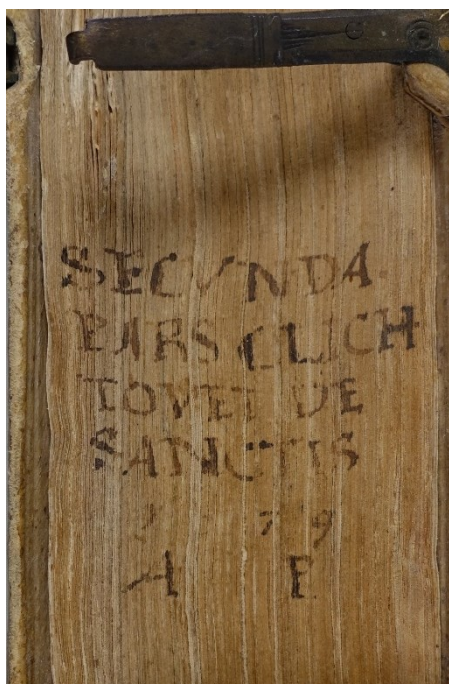 SECVNDA
PARS CLICH
TOVEI DE
SANCTIS
79
A P